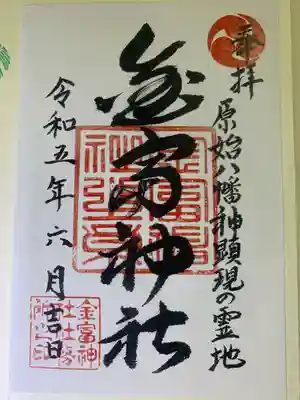 奉拝
原始八幡神顕現の霊地
金富神社
令和五年六月吉日
金富神
社社務